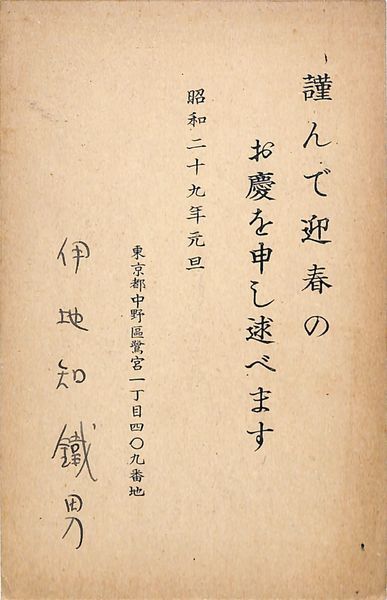 謹んで迎春の
お慶を申し逑べます
昭和二十九年元旦
東京都中野區鷺宮一丁目四〇九番地
伊地知鐵男